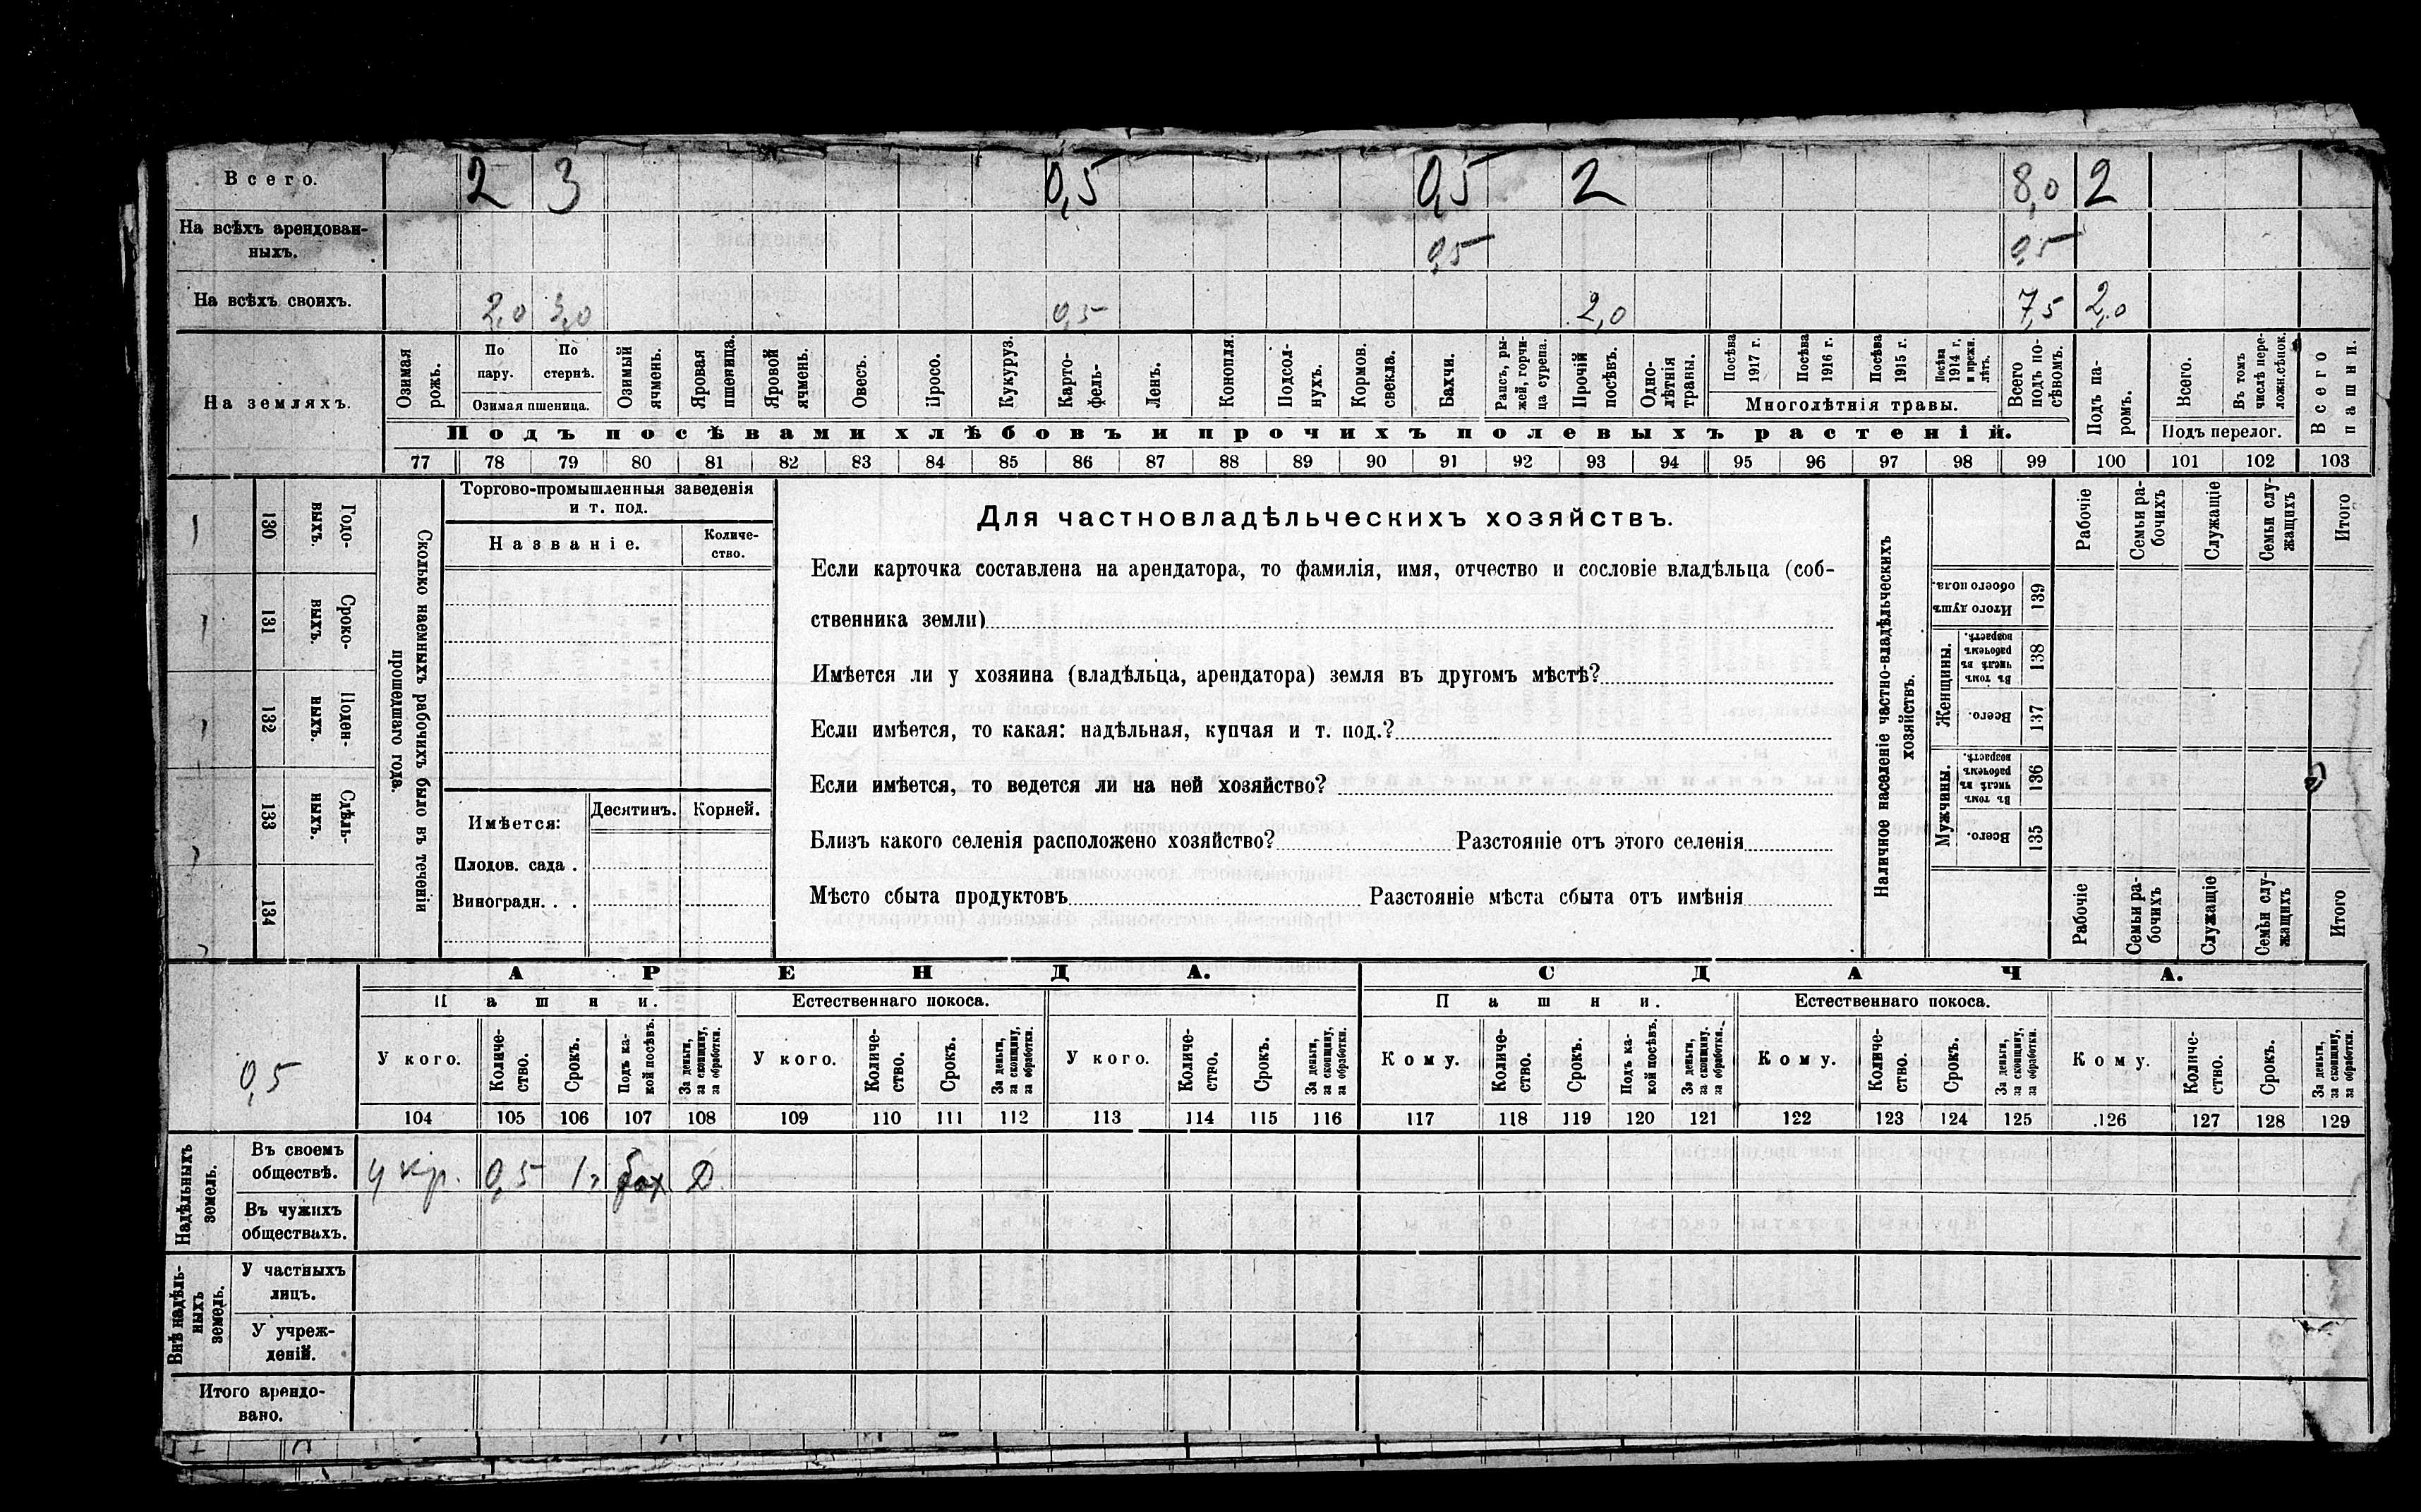 Всего. 2 3 0,5 0,5 2 8,0 2
На всѣхъ арендован-
ныхъ. 0,5 0,5
На всѣхъ своихъ. 2,0 3,0 0,5 2,0 7,5 2,0
На земляхъ.
Озимая рожь.
По пару.
По стернѣ.
Озимая пшеница.
Озимый ячмень.
Яровая пшеница.
Яровой ячмень.
Овесъ.
Просо.
Кукуруз.
Карто-
фель-
Ленъ.
Конопля.
Подсол-
нухъ.
Кормов. свекла.
Бахчи.
Рапсъ, ры-
жей, горчи-
ца сурепа.
Прочій посѣвъ.
Одно-
лѣтнія травы.
Посѣва 1917 г.
Посѣва 1916 г.
Посѣва 1915 г.
Посѣва 1914 г. и прежн. лѣтъ.
Многолѣтнія травы.
Всего подъ по-
сѣвомъ.
Подъ па-
ромъ.
Всего.
Въ томъ числѣ пере-
ложн. сѣнок.
Подъ перелог.
Всего пашни.
Подъ посѣвами хлѣбовъ и прочихъ полевыхъ растеній.
77 78 79 80 81 82 83 84 85 86 87 88 89 90 91 92 93 94 95 96 97 98 99 100 101 102 103
Сколько наемныхъ рабочихъ было въ теченіи
прошедшаго года.
Годо-
выхъ.
130
Сроко-
выхъ.
131
Поден-
ныхъ.
132
Сдѣль-
ныхъ.
133
134
Торгово-промышленныя заведенія
и т. под.
Названіе.
Количе-
ство.
Имѣется:
Десятинъ. Корней.
Плодов. сада .
Виноградн. . .
Для частновладѣльческихъ хозяйствъ.
Если карточка составлена на арендатора, то фамилія, имя, отчество и сословіе владѣльца (соб-
ственника земли)
Имѣется ли у хозяина (владѣльца, арендатора) земля въ другомъ мѣстѣ?
Если имѣется, то какая: надѣльная, купчая и т. под.?
Если имѣется, то ведется ли на ней хозяйство?
Близъ какого селенія расположено хозяйство? Разстояніе отъ этого селенія
Мѣсто сбыта продуктовъ Разстояніе мѣста сбыта отъ имѣнія
Наличное населеніе частно-владѣльческихъ
хозяйствъ.
Рабочіе
Семьи ра-
бочихъ
Служащіе
Семьи слу-
жащихъ
Итого
Итого душъ обоего пола.
139
Женщины.
Въ томъ числѣ въ рабочемъ возрастѣ.
138
Всего.
137
Мужчины.
Въ томъ числѣ въ рабочемъ возрастѣ.
136
Всего.
135
Рабочіе
Семьи ра-
бочихъ
Служащіе
Семьи слу-
жащихъ
Итого
АРЕНДА. СДАЧА.
Пашни. Естественнаго покоса. Пашни. Естественнаго покоса.
0,5
У кого.
Количе-
ство.
Срокъ.
Подъ ка-
кой посѣвъ.
За деньги, за скопщину, за обработки.
У кого.
Количе-
ство.
Срокъ.
За деньги, за скопщину, за обработки.
У кого.
Количе-
ство.
Срокъ.
За деньги, за скопщину, за обработки.
Кому.
Количе-
ство.
Срокъ.
Подъ ка-
кой посѣвъ.
За деньги, за скопщину, за обработки.
Кому.
Количе-
ство.
Срокъ.
За деньги, за скопщину, за обработки.
Кому.
Количе-
ство.
Срокъ.
За деньги, за скопщину, за обработки.
104 105 106 107 108 109 110 111 112 113 114 115 116 117 118 119 120 121 122 123 124 125 126 127 128 129
Надѣльныхъ земель.
Въ своемъ
обществѣ. у кр. 0,5 1 г бах Д.
Въ чужихъ
обществахъ.
Внѣ надѣль-
ныхъ земель.
У частныхъ
лицъ.
У учреж-
деній.
Итого арендо-
вано.